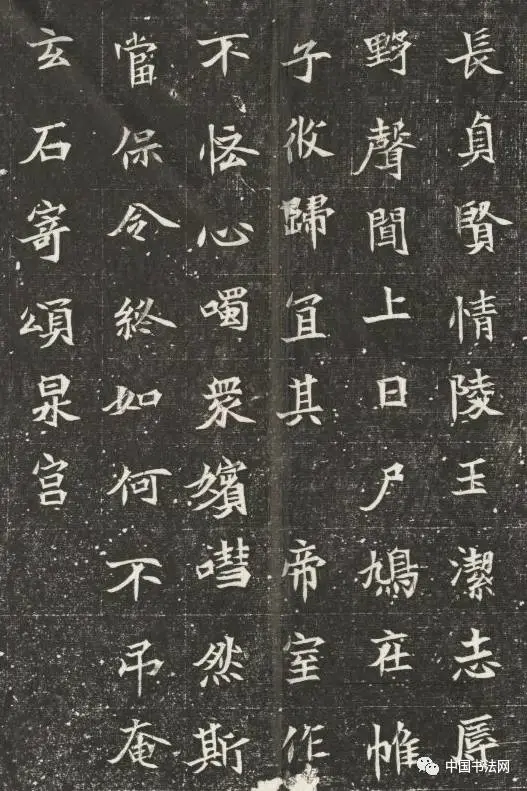 長貞賢情陵玉潔志
野聲聞上日尸鳩在帷
子攸歸宜其帝室作
不恡心囑衆嬪嘒然斯
當保令終如何不弔奄
玄石寄頌泉宫
中国书法网